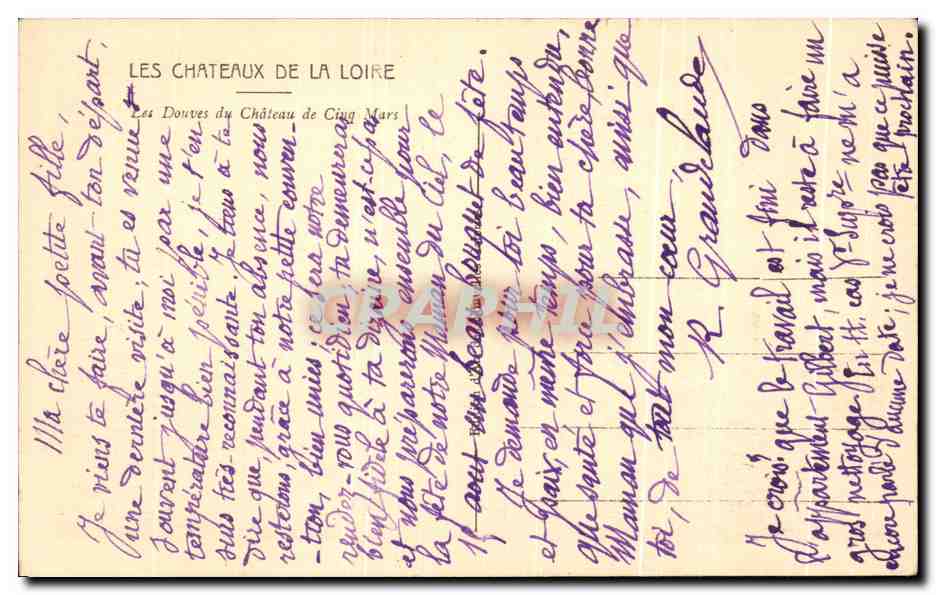 LES CHATEAUX DE LA LOIRE
Les Douves du Château de Cinq Mars
Ma chère petite fille,
Je viens te faire, avant ton départ,
une dernière visite ; tu es venue
souvent jusqu'à moi par une
température bien pénible, je t'en
suis très-reconnaissante. Je tiens à te
dire que pendant ton absence, nous
resterons, grâce à notre petite conven-
-tion, bien unies ; ce sera notre
rendez-vous quotidien ; tu demeureras
bien fidèle à ta dizaine, n'est-ce pas,
et nous préparerons ensemble pour
la fête de notre Maman du Ciel, le
15 août, un beau bouquet de fête.
Je demande pour toi beau temps
et paix, en même temps, bien entendu,
que santé et joie pour ta chère bonne
Maman que j'embrasse, ainsi que
toi, de tout mon cœur,
R. Grandclaude
Je crois que le travail est fini dans
l'appartement Gilbert, mais il reste à faire un
gros nettoyage. En tt. cas, ne m'a
encore parlé d'aucune date ; je ne crois pas que ce puisse
être prochain.
CPARHIL